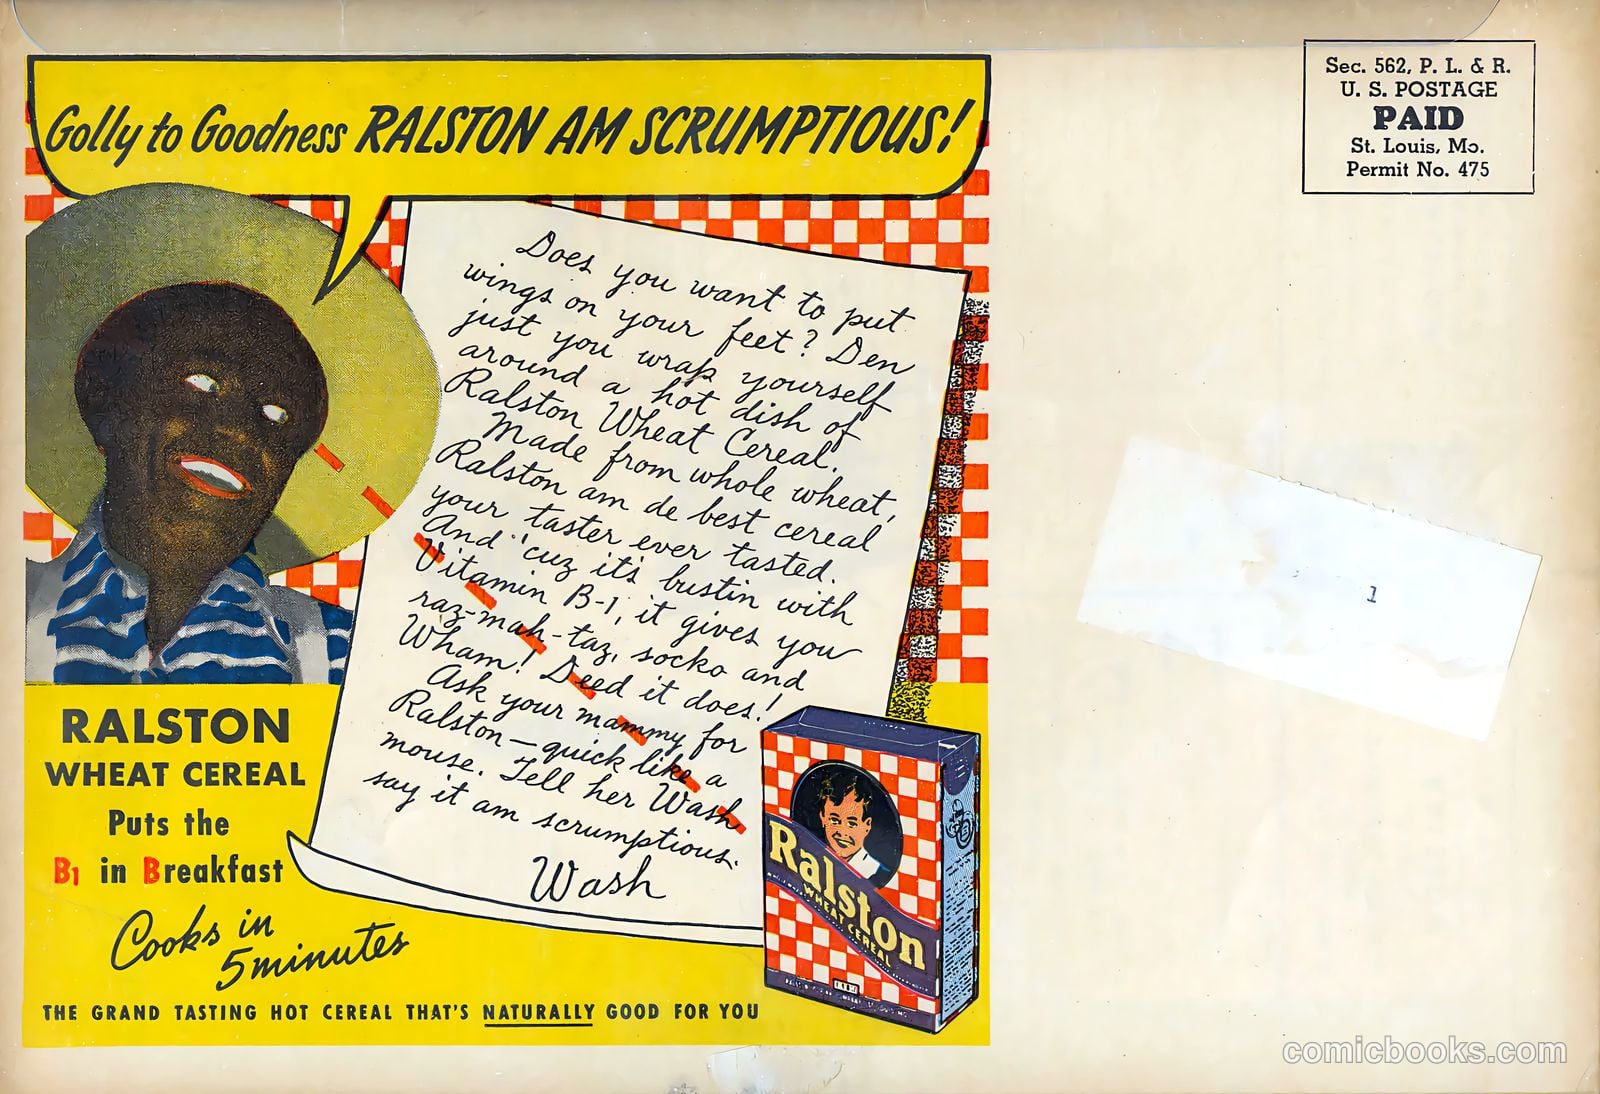 Golly to Goodness RALSTON AM SCRUMPTIOUS!
Sec. 562, P. L. & R.
U. S. POSTAGE
PAID
St. Louis, Mo.
Permit No. 475
Does you want to put
wings on your feet? Den
just you wrap yourself
around a hot dish of
Ralston Wheat Cereal.
Made from whole wheat,
Ralston am de best cereal
your taster ever tasted.
And 'cuz it's bustin with
Vitamin B-1, it gives you
raz-mah-taz, socko and
Wham! Deed it does!
Ask your mammy for
Ralston—quick like a
mouse. Tell her Wash
say it am scrumptious.
Wash
RALSTON
WHEAT CEREAL
Puts the
B1 in Breakfast
Cooks in
5 minutes
THE GRAND TASTING HOT CEREAL THAT'S NATURALLY GOOD FOR YOU
Ralston
WHEAT CEREAL
1
comicbooks.com